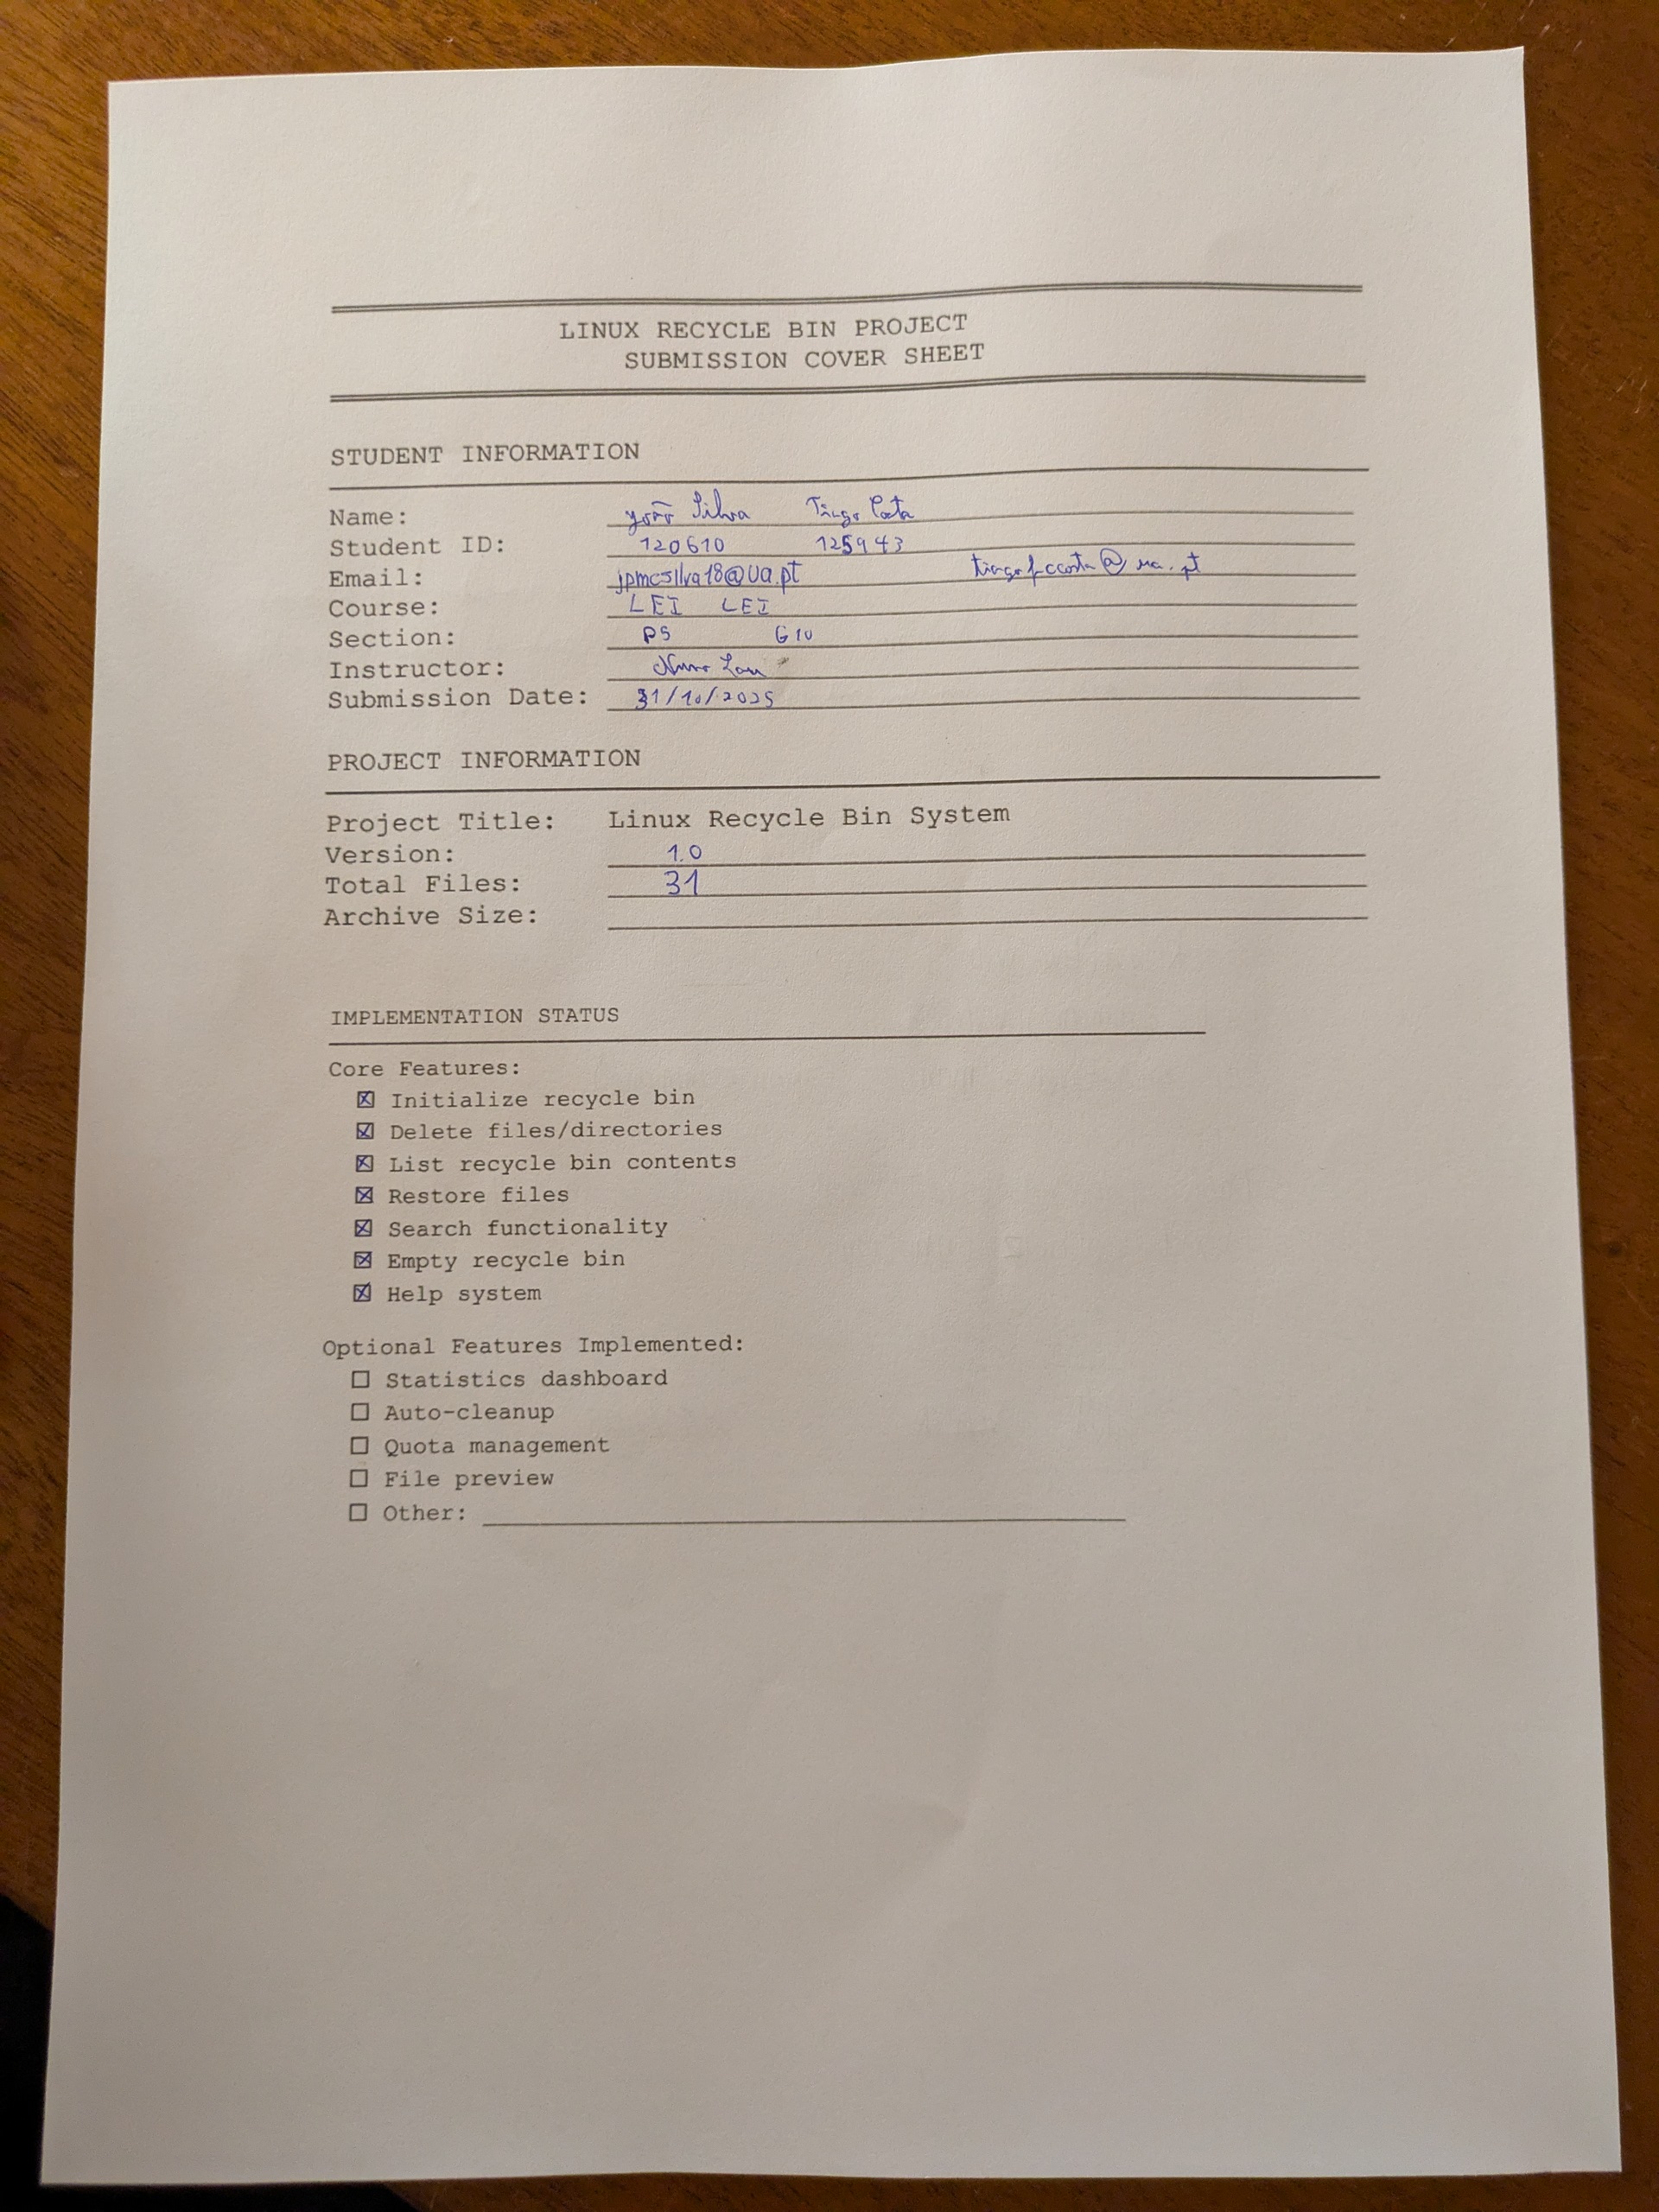 LINUX RECYCLE BIN PROJECT
SUBMISSION COVER SHEET
STUDENT INFORMATION
Name: João Silva Tiago Costa
Student ID: 120610 125943
Email: jpmcsilva18@ua.pt
Course: LEI LEI
Section: P5 G10
Instructor: Nuno Lau
Submission Date: 31/10/2025
PROJECT INFORMATION
Project Title: Linux Recycle Bin System
Version: 1.0
Total Files: 31
Archive Size:
IMPLEMENTATION STATUS
Core Features:
☒ Initialize recycle bin
☒ Delete files/directories
☒ List recycle bin contents
☒ Restore files
☒ Search functionality
☒ Empty recycle bin
☒ Help system
Optional Features Implemented:
☐ Statistics dashboard
☐ Auto-cleanup
☐ Quota management
☐ File preview
☐ Other: